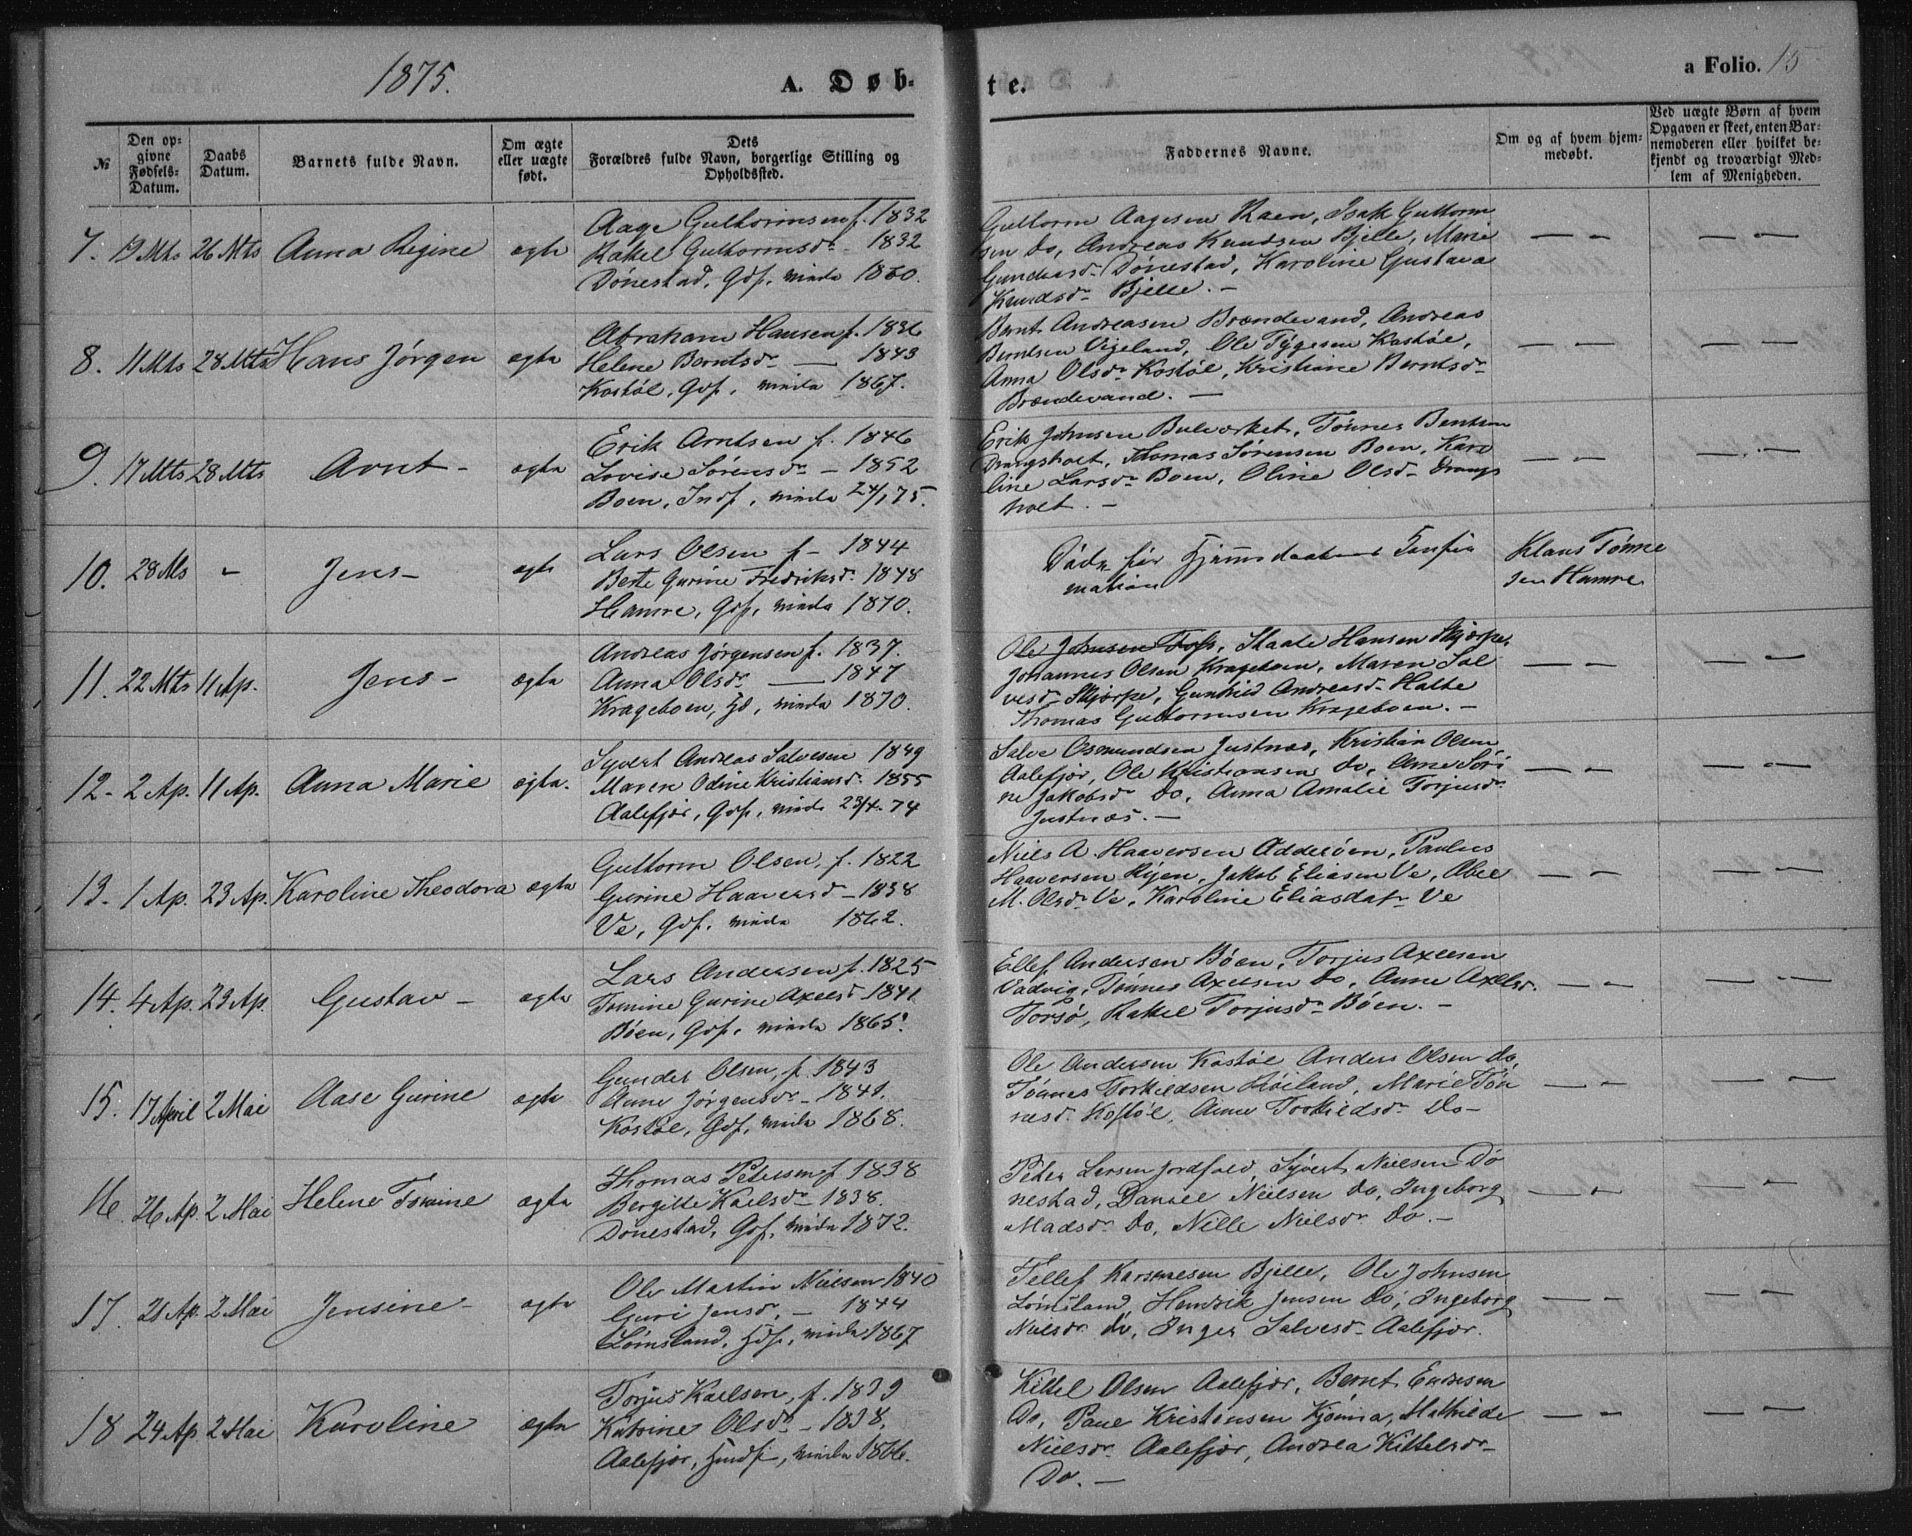 1875.
A. Døb-
te.
a Folio. 15
№
Den op-
givne
Fødsels-
Datum.
Daabs
Datum.
Barnets fulde Navn.
Om ægte
eller uægte
født.
Dets
Forældres fulde Navn, borgerlige Stilling og
Opholdssted.
Faddernes Navne.
Om og af hvem hjem-
medøbt.
Ved uægte Børn af hvem
Opgaven er skeet, enten Bar-
nemoderen eller hvilket be-
kjendt og troværdigt Med-
lem af Menigheden.
7. 19 Mts 26 Mts Anna Regine ægte
Aage Guttormsen f. 1832
Rakel Guttormsdr - 1832
Dønestad, Gdf, vinda 1860.
Guttorm Aagesen Raen, Isak Guttorm
sen do, Andreas Knudsen Bjelle, Marie
Gundersdr Dønestad, Karoline Gustava
Knudsdr Bjelle. -
8. 11 Mts 28 Mts Hans Jørgen ægte
Abraham Hansen f. 1836
Helene Berntsdr — 1843
Kostøl, Gdf, vinda 1867.
Bernt Andreasen Brændevand, Andreas
Berntsen Vigeland, Ole Tygesen Kostøl,
Anna Olsdr Kostøl, Kristiane Berntsdr
Brændevand. -
9. 17 Mts 28 Mts Arnt - ægte
Erik Arntsen f. 1846
Lovise Sørensdr - 1852
Boen, Indf, vinda 24/1 75.
Erik Johnsen Bulværket, Tønnes Bentsen
Drangsholt, Thomas Sørensen Boen, Karo
line Larsdr Boen, Oline Olsdr Drangs
holt. -
10. 28 Mts - Jens - ægte
Lars Olsen f - 1844
Berte Gurine Fredriksdr 1848
Hamre, Gdf, vinda 1870.
Døde før Hjemmedaabens Confir
mation
Klaus Tønne
sen Hamre
11. 22 Mts 11 Ap. Jens - ægte
Andreas Jørgensen f. 1837.
Anna Olsdr — 1847
Krageboen, Hd, vinda 1870.
Ole Johnsen Foss, Staale Hansen Skjerpe,
Johannes Olsen Krageboen, Maren Sal
vesdr Skjerpe, Gunhild Andreasdr Halte
Thomas Guttormsen Krageboen. -
12. 2 Ap. 11 Ap. Anna Marie ægte.
Syvert Andreas Salvesen 1849
Maren Odine Kristiansdr 1855
Aalefjær, Gdf, vinda 23/4 74
Salve Osmundsen Justnæs, Kristian Olsen
Aalefjær, Ole Kristiansen do, Anne Seri
ne Jakobsdr do, Anna Amalie Torjusdr
Justnæs. -
13. 1 Ap. 23 Ap. Karoline Theodora ægte
Guttorm Olsen, f. 1822
Gurine Haaversdr - 1838
Ve, Gdf, vinda 1862.
Niels A. Haaversen Odderøen, Paulus
Haaversen Ryen, Jakob Eliasen Ve, Abel
M. Olsdr Ve, Karoline Eliasdatr Ve
14. 4 Ap. 23 Ap. Gustav - ægte
Lars Andersen f. 1825
Tomine Gurine Axelsdr 1841
Bøen, Gdf, vinda 1865.
Ellef Andersen Bøen, Torjus Axelsen
Vadvig, Tønnes Axelsen do, Anne Axelsdr.
Torsø, Rakel Torjusdr Bøen. -
15. 17 April 2 Mai Aase Gurine ægte
Gunder Olsen, f. 1843
Anne Jørgensdr - 1841.
Kostøl, Gdf, vinda 1868.
Ole Andersen Kostøl Anders Olsen do,
Tønnes Torkildsen Høiland, Marie Tøn
nesdr Kostøl, Anne Torkildsdr do -
16. 26 Ap. 2 Mai Helene Tomine ægte
Thomas Petersen f 1838
Bergitte Karlsdr - 1838.
Dønestad, Gdf, vinda 1872.
Peder Larsen Jordfald, Syvert Nielsen Dø
nestad, Daniel Nielsen do, Ingeborg
Madsdr do, Nille Nielsdr do. -
17. 21 Ap. 2 Mai Jensine - ægte
Ole Martin Nielsen 1840
Guri Jensdr, - 1844
Lømsland, Hdf, vinda 1867
Tellef Karsmesen Bjelle, Ole Johnsen
Lømsland, Hendrik Jensen do, Ingeborg
Nielsdr do, Inger Salvesdr Aalefjær.
18 24 Ap. 2 Mai Karoline ægte
Torjus Karlsen, f. 1839
Katrine Olsdr - 1838,
Aalefjær, Hmdf, vinda 1866.
Kittel Olsen Aalefjær, Bernt Endresen
Do, Paul Kristensen Kjønna, Mathilde
Nielsdr Aalefjær, Andrea Kittelsdr
Do. -